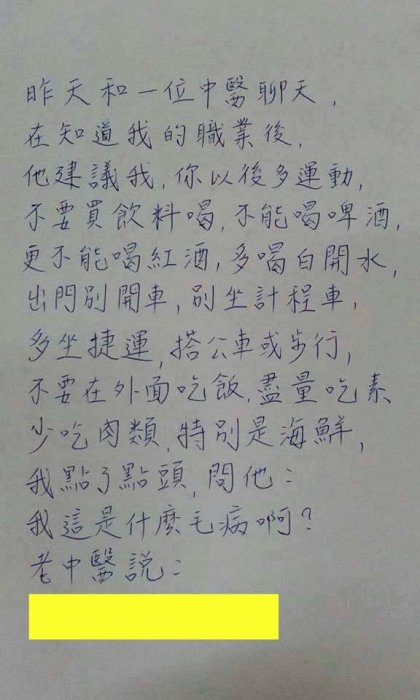 昨天和一位中醫聊天,
在知道我的職業後,
他建議我,你以後多運動,
不要買飲料喝,不能喝啤酒,
更不能喝紅酒,多喝白開水,
出門別開車,別坐計程車,
多坐捷運,搭公車或步行,
不要在外面吃飯,盡量吃素
少吃肉類,特別是海鮮,
我點了點頭,問他:
我這是什麼毛病啊?
老中醫說: